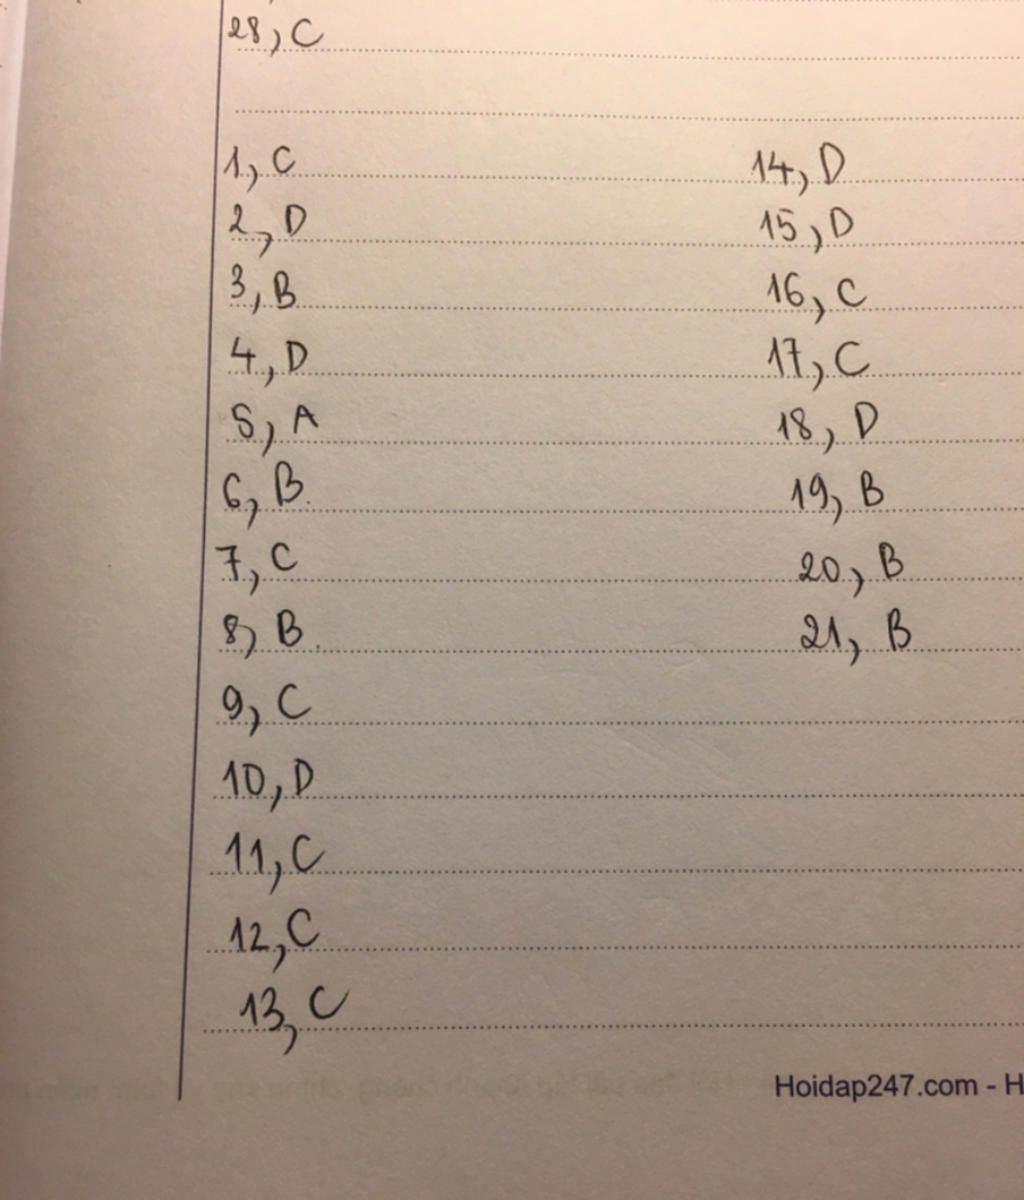 28, C
1, C
2, D
3, B
4, D
5, A
6, B.
7, C
8, B.
9, C
10, D
11, C
12, C
13, C
14, D
15, D
16, C
17, C
18, D
19, B
20, B
21, B
Hoidap247.com - H